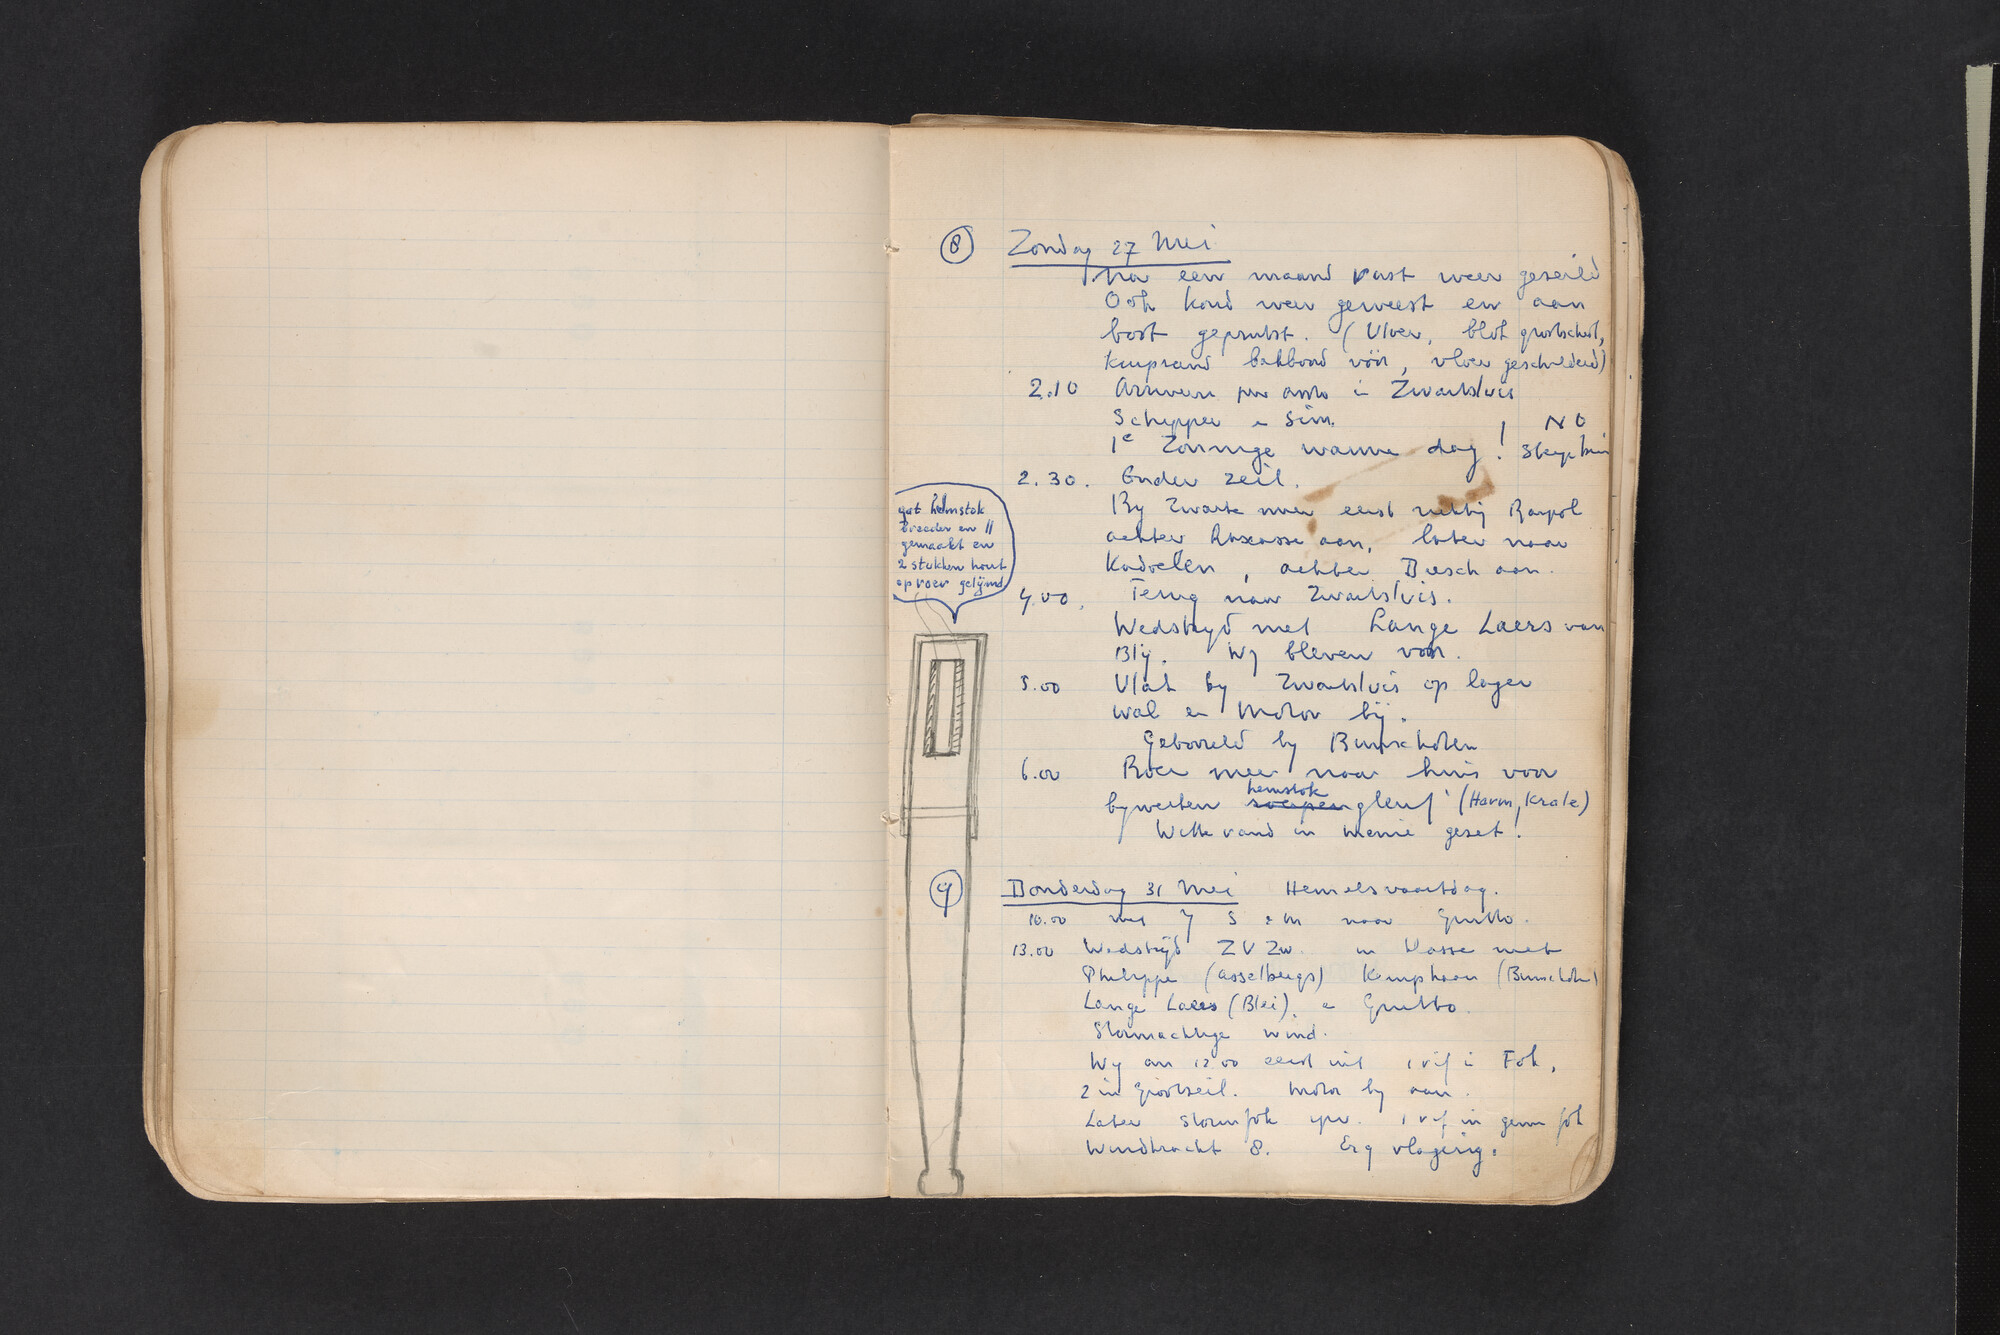 8 Zondag 27 Mei
Na een maand rust weer gezeild
Ook koud weer geweest en aan
boot geprutst. (Vloer, blok grootschoot,
kuiprand bakboord vóór, vloer geschilderd)
2.10 in Zwartsluis
Schipper en
1e Zonnige warme dag! NO
2.30. Onder zeil.
By Zwarte meer eerst richting
achter aan, later naar
Kadoelen, achter aan.
gat helmstok
breeder en //
gemaakt en
2 stukken hout
op roer gelijmd
4.00. Terug naar Zwartsluis.
Wedstryd met Lange Laers van
Blij. Wy bleven voor.
5.00 Vlak by Zwartsluis op lager
wal en motor bij.
Geborreld by Bunschoten
6.00 Roer mee naar huis voor
bywerken helmstok gleuf (Harm, Krale)
Witte rand in menie gezet.
9 Donderdag 31 Mei Hemelsvaartdag.
10.00 met naar Grutto.
13.00 Wedstrijd ZVZw. in klasse met
Philippe (Asselbergs) Kemphaan (Bunschoten)
Lange Laers (Blei), en Grutto.
Stormachtige wind.
Wy om 12.00 eerst uit 1 rif in Fok,
2 in Grootzeil. Motor by aan.
Later stormfok 1 rif in gewone fok
Windkracht 8. Erg vlagerig.